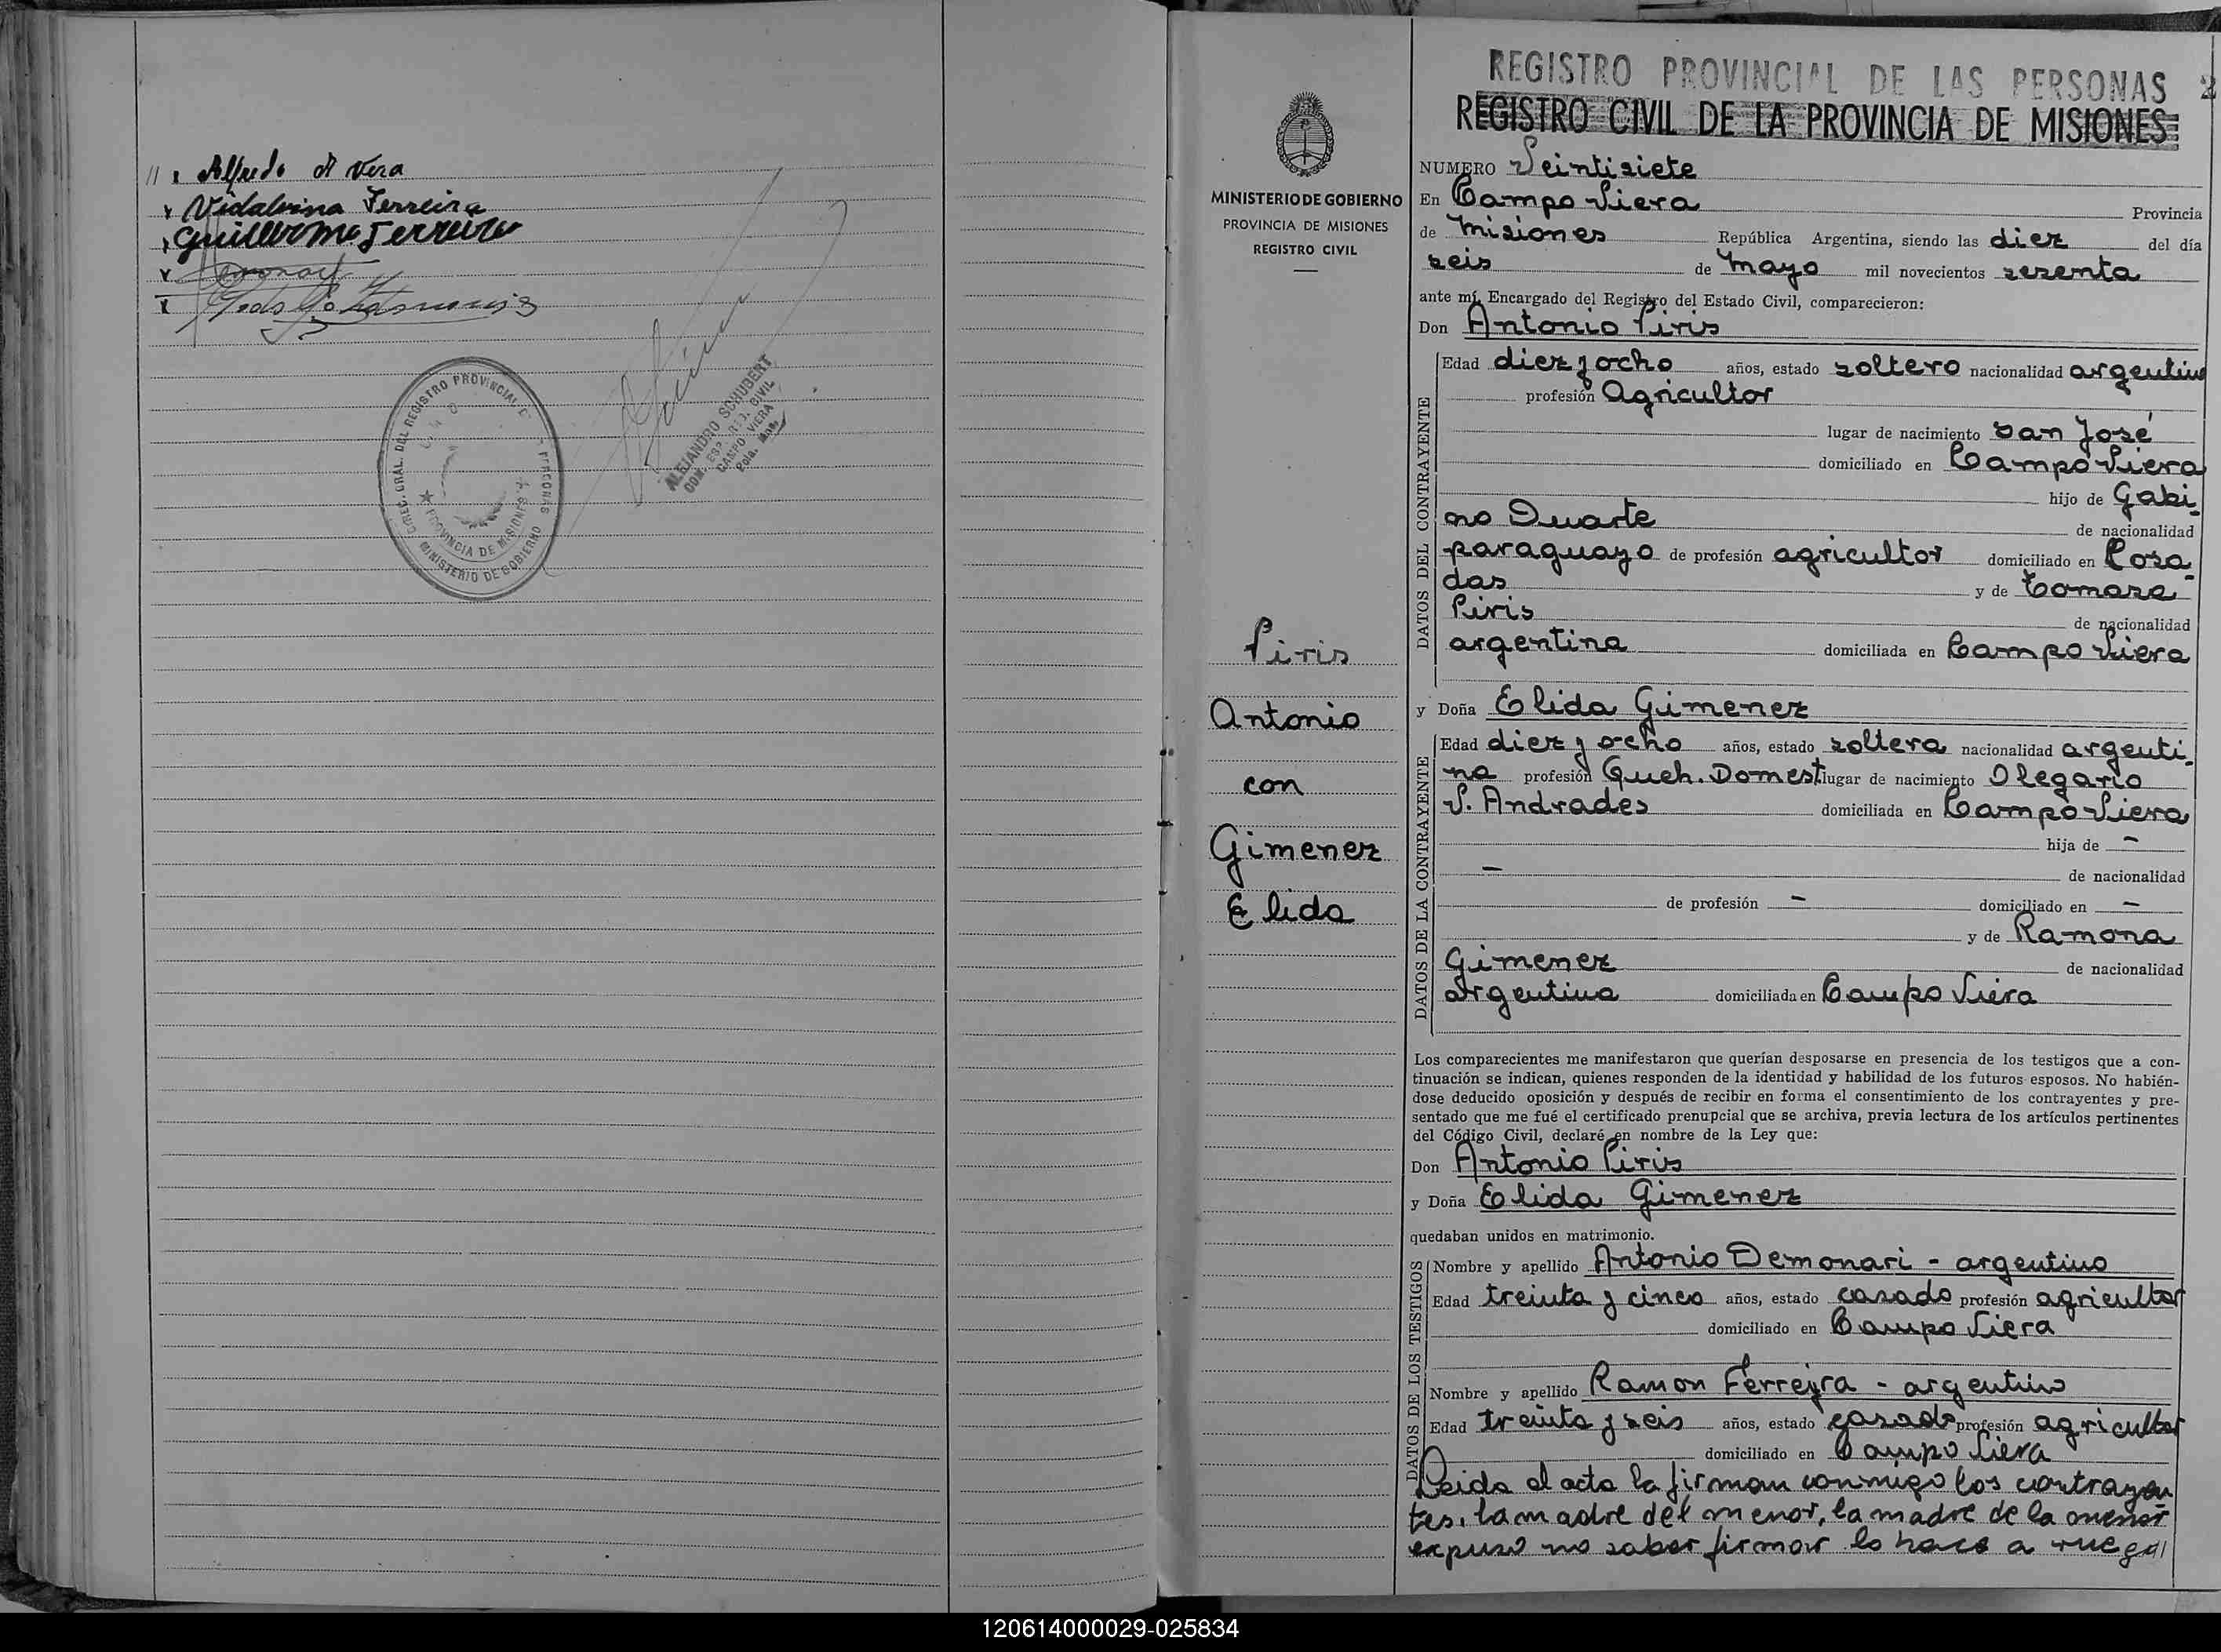 // x Alfredo A Vera
x Vidalvina Ferreira
x Guillermo Ferreira
x
x
DIREC. GRAL. DEL REGISTRO PROVINCIAL DE PERSONAS
★ PROVINCIA DE MISIONES ★
MINISTERIO DE GOBIERNO
ALEJANDRO SCHUBERT
CAMPO VIERA
MINISTERIO DE GOBIERNO
PROVINCIA DE MISIONES
REGISTRO CIVIL
Piris
Antonio
con
Gimenez
Elida
REGISTRO PROVINCIAL DE LAS PERSONAS 2
REGISTRO CIVIL DE LA PROVINCIA DE MISIONES
NUMERO Veintisiete
En Campo Viera Provincia
de Misiones República Argentina, siendo las diez del día
seis de Mayo mil novecientos sesenta
ante mí, Encargado del Registro del Estado Civil, comparecieron:
Don Antonio Piris
DATOS DEL CONTRAYENTE
Edad diez y ocho años, estado soltero nacionalidad argentino
profesión Agricultor
lugar de nacimiento San José
domiciliado en Campo Viera
hijo de Gabi-
no Duarte
de nacionalidad
paraguayo de profesión agricultor domiciliado en Posa-
das y de Tomasa
Piris
de nacionalidad
argentina domiciliada en Campo Viera
y Doña Elida Gimenez
DATOS DE LA CONTRAYENTE
Edad diez y ocho años, estado soltera nacionalidad argenti-
na profesión Queh. Domest. lugar de nacimiento Olegario
V. Andrades domiciliada en Campo Viera
hija de —
— de nacionalidad
de profesión — domiciliado en —
y de Ramona
Gimenez de nacionalidad
argentina domiciliada en Campo Viera
Los comparecientes me manifestaron que querían desposarse en presencia de los testigos que a con-
tinuación se indican, quienes responden de la identidad y habilidad de los futuros esposos. No habién-
dose deducido oposición y después de recibir en forma el consentimiento de los contrayentes y pre-
sentado que me fué el certificado prenupcial que se archiva, previa lectura de los artículos pertinentes
del Código Civil, declaré en nombre de la Ley que:
Don Antonio Piris
y Doña Elida Gimenez
quedaban unidos en matrimonio.
DATOS DE LOS TESTIGOS
Nombre y apellido Antonio Demonari - argentino
Edad treinta y cinco años, estado casado profesión agricultor
domiciliado en Campo Viera
Nombre y apellido Ramon Ferreyra - argentino
Edad treinta y seis años, estado casado profesión agricultor
domiciliado en Campo Viera
Leida el acta la firman conmigo los contrayen-
tes, la madre del menor, la madre de la menor
expuso no saber firmar lo hace a ruego //
120614000029-025834